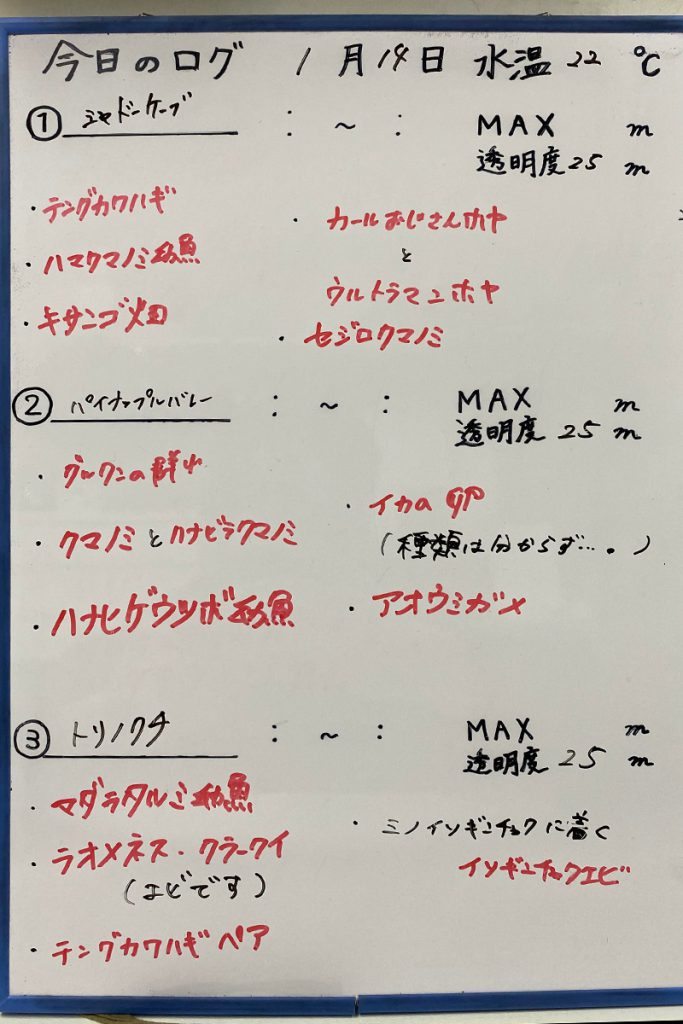 今日のログ 1月14日 水温22 ℃
① シャドーケーブ : ~ : MAX m
透明度25m
・テングカワハギ
・ハマクマノミ幼魚
・キサンゴ畑
・カールおじさんホヤ
と
ウルトラマンホヤ
・セジロクマノミ
② パイナップルバレー : ~ : MAX m
透明度25m
・グルクンの群れ
・クマノミとハナビラクマノミ
・ハナヒゲウツボ幼魚
・イカの卵
(種類は分からず…。)
・アオウミガメ
③ トリノクチ : ~ : MAX m
透明度25m
・マダラタルミ幼魚
・ラオメネス・クラークイ
(エビです)
・テングカワハギペア
・ミノイソギンチャクに着く
イソギンチャクエビ